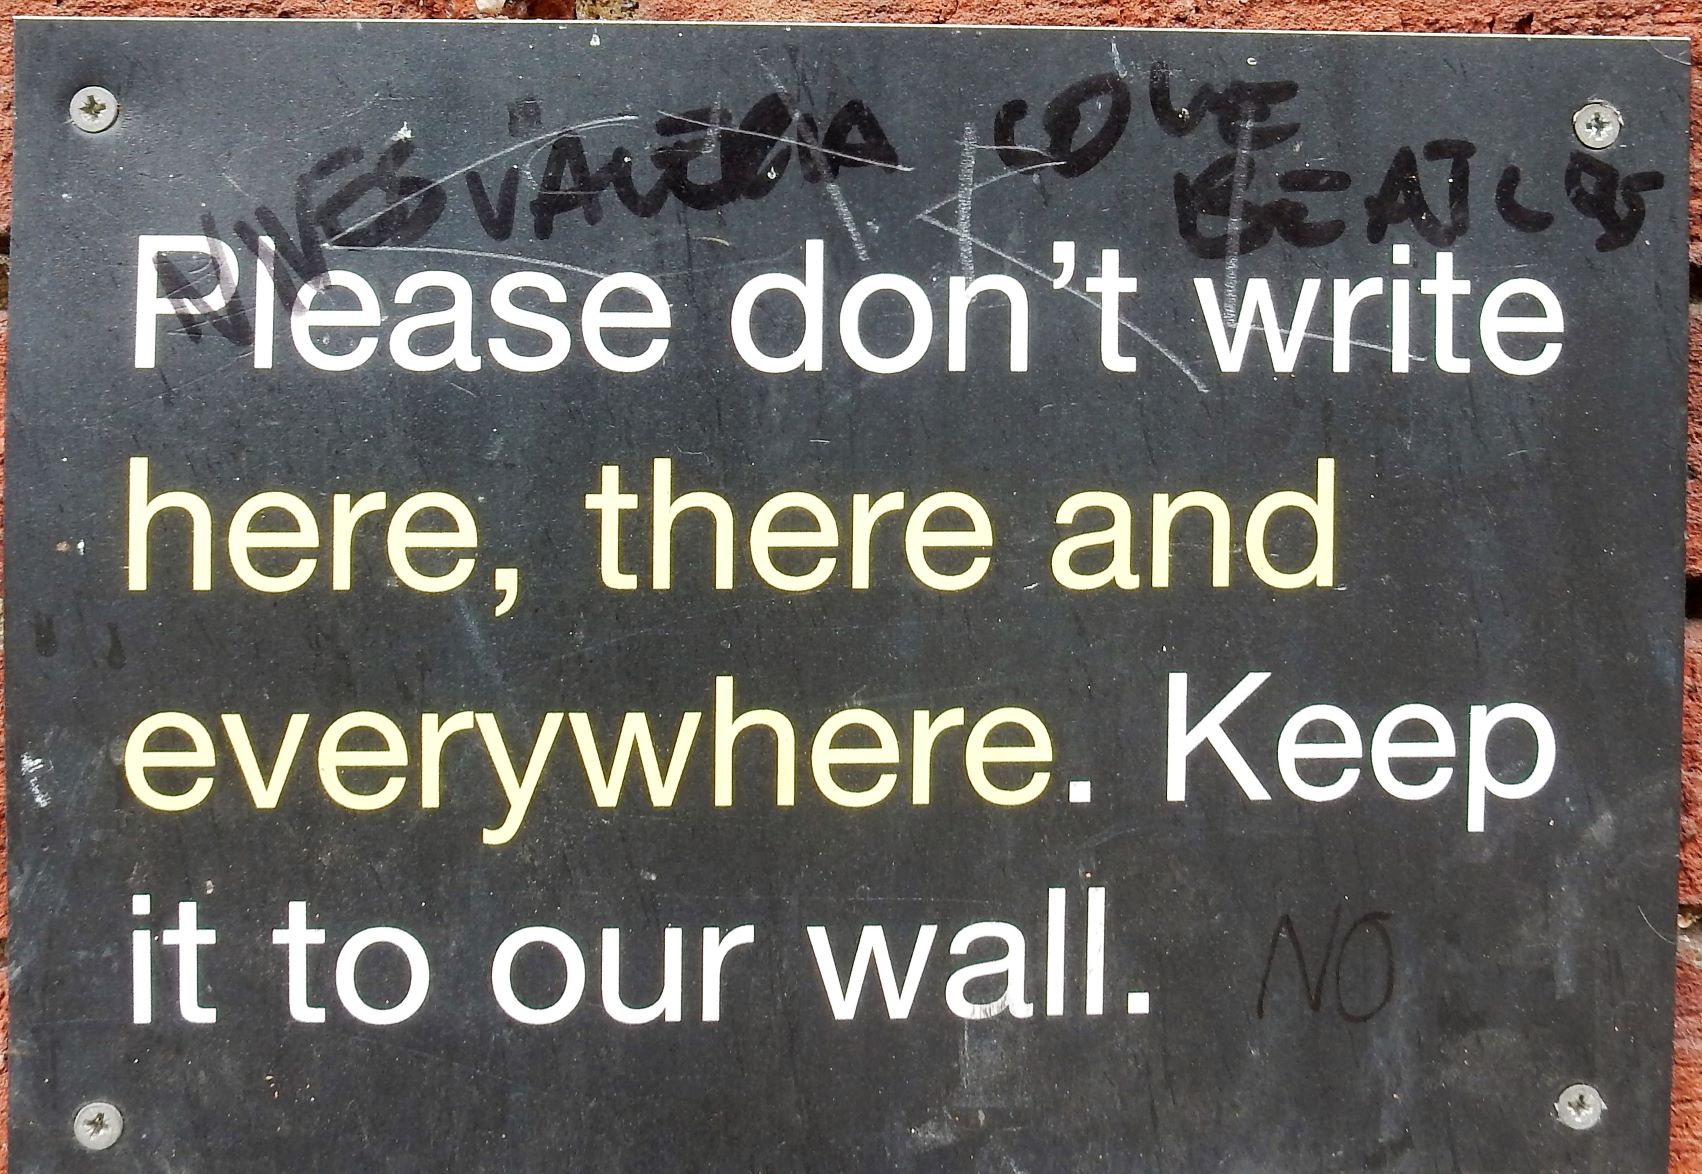 LOVE
BEATLES
Please don't write
here, there and
everywhere. Keep
it to our wall. NO